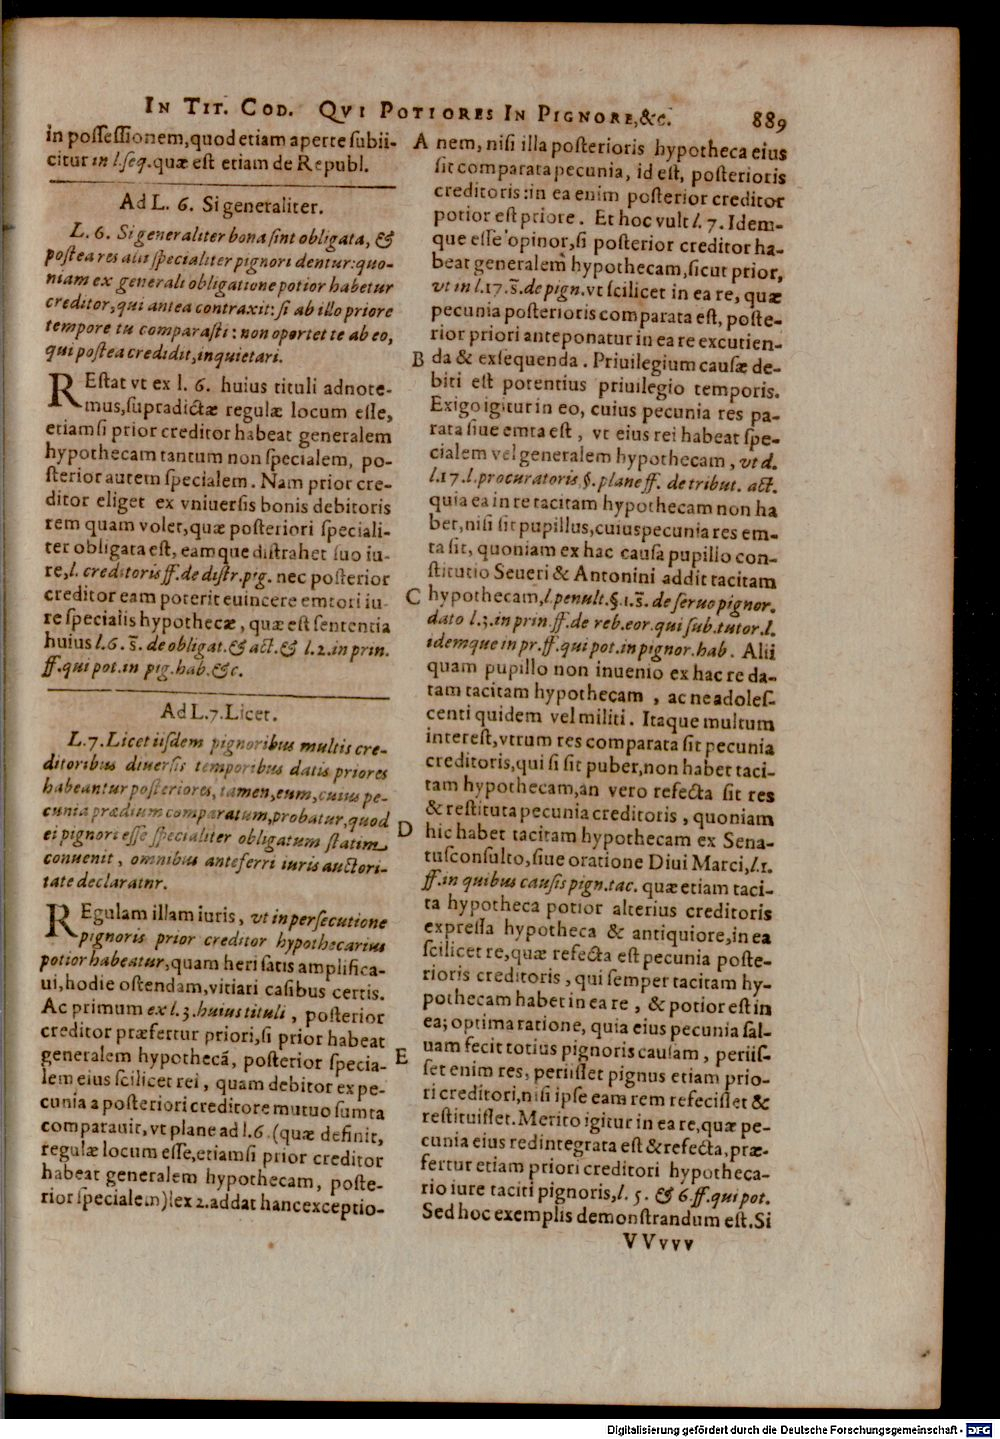 IN TIT. COD. QVI POTIORES IN PIGNORE,&c. 889
in poſſeſſionem,quod etiam aperte ſubii-
citur in l.ſeq.quæ eſt etiam de Republ.
Ad L. 6. Si generaliter.
L. 6. Si generaliter bona ſint obligata, &
poſtea res alii ſpecialiter pignori dentur:quo-
niam ex generali obligatione potior habetur
creditor,qui antea contraxit: ſi ab illo priore
tempore tu comparaſti: non oportet te ab eo,
qui poſtea credidit,inquietari.
REſtat vt ex l. 6. huius tituli adnote-
mus,ſupradictæ regulæ locum eſſe,
etiamſi prior creditor habeat generalem
hypothecam tantum non ſpecialem, po-
ſterior autem ſpecialem. Nam prior cre-
ditor eliget ex vniuerſis bonis debitoris
rem quam volet,quæ poſteriori ſpeciali-
ter obligata eſt, eamque diſtrahet ſuo iu-
re,l. creditoris ff.de diſtr.pig. nec poſterior
creditor eam poterit euincere emtori iu-
re ſpecialis hypothecæ, quæ eſt ſententia
huius l.6. s̄. de obligat.& act.& l.2.in prin.
ff.qui pot.in pig.hab.&c.
Ad L.7.Licet.
L.7.Licet iiſdem pignoribus multis cre-
ditoribus diuerſis temporibus datis priores
habeantur poſteriores, tamen,eum,cuius pe-
cunia prædium comparatum,probatur,quod
ei pignori eſſe ſpecialiter obligatum ſtatim
conuenit, omnibus anteferri iuris auctori-
tate declaratnr.
REgulam illam iuris, vt in perſecutione
pignoris prior creditor hypothecarius
potior habeatur,quam heri ſatis amplifica-
ui,hodie oſtendam,vitiari caſibus certis.
Ac primum ex l.3.huius tituli, poſterior
creditor præfertur priori,ſi prior habeat
generalem hypothecā, poſterior ſpecia-
lem eius ſcilicet rei, quam debitor ex pe-
cunia a poſteriori creditore mutuo ſumta
comparauit, vt plane ad l.6.(quæ definit,
regulæ locum eſſe,etiamſi prior creditor
habeat generalem hypothecam, poſte-
rior ſpecialem)lex 2.addat hanc exceptio-
A nem, niſi illa poſterioris hypotheca eius
ſit comparata pecunia, id eſt, poſterioris
creditoris:in ea enim poſterior creditor
potior eſt priore. Et hoc vult l. 7. Idem-
que eſſe opinor,ſi poſterior creditor ha-
beat generalem hypothecam,ſicut prior,
vt in l.17.s̄.de pign.vt ſcilicet in ea re, quæ
pecunia poſterioris comparata eſt, poſte-
rior priori anteponatur in ea re excutien-
B da & exſequenda. Priuilegium cauſæ de-
biti eſt potentius priuilegio temporis.
Exigo igitur in eo, cuius pecunia res pa-
rata ſiue emta eſt, vt eius rei habeat ſpe-
cialem vel generalem hypothecam, vt d.
l.17.l.procuratoris.§.plane ff. de tribut. act.
quia ea in re tacitam hypothecam non ha
bet,niſi ſit pupillus,cuius pecunia res em-
ta ſit, quoniam ex hac cauſa pupillo con-
ſtitutio Seueri & Antonini addit tacitam
C hypothecam,l.penult.§.1.s̄. de ſeruo pignor.
dato l.3.in prin.ff.de reb.eor.qui ſub.tutor.l.
idemque in pr.ff.qui pot.in pignor.hab. Alii
quam pupillo non inuenio ex hac re da-
tam tacitam hypothecam, ac ne adoleſ-
centi quidem vel militi. Itaque multum
intereſt,vtrum res comparata ſit pecunia
creditoris,qui ſi ſit puber,non habet taci-
tam hypothecam,an vero refecta ſit res
& reſtituta pecunia creditoris, quoniam
D hic habet tacitam hypothecam ex Sena-
tuſconſulto,ſiue oratione Diui Marci,l.1.
ff.in quibus cauſis pign.tac. quæ etiam taci-
ta hypotheca potior alterius creditoris
expreſſa hypotheca & antiquiore,in ea
ſcilicet re,quæ refecta eſt pecunia poſte-
rioris creditoris, qui ſemper tacitam hy-
pothecam habet in ea re, & potior eſt in
ea; optima ratione, quia eius pecunia ſal-
E uam fecit totius pignoris cauſam, periiſ-
ſet enim res, periiſſet pignus etiam prio-
ri creditori,niſi ipſe eam rem refeciſſet &
reſtituiſſet. Merito igitur in ea re,quæ pe-
cunia eius redintegrata eſt & refecta,præ-
fertur etiam priori creditori hypotheca-
rio iure taciti pignoris,l. 5. & 6.ff.qui pot.
Sed hoc exemplis demonſtrandum eſt.Si
VVvvv
Digitalisierung gefördert durch die Deutsche Forschungsgemeinschaft - DFG